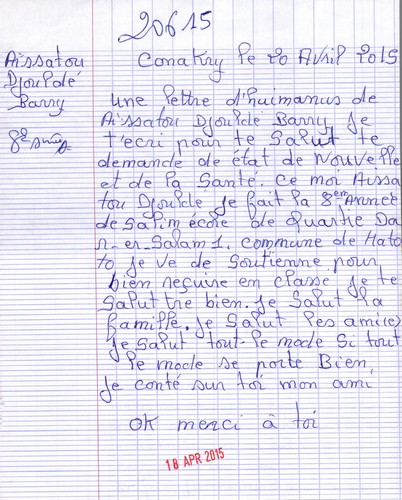 20615
Aissatou
Djouldé
Barry
8e
Conakry le 20 Avril 2015
une lettre d'huimanus de
Aissatou Djoulde Barry je
t'ecri pour te Salut te
demande de état de Nouvelle
et de la Santé. ce moi Aissa
tou Djoulde je fait la 8em Année
de Salim école de quartie Da
r-er-Salam 1. commune de Rato
to je ve de Soutienne pour
bien reçure en classe je te
Salut tre bien. je Salut la
famille. je Salut les ami(e)
je Salut tout le mode Si tout
le mode se porte Bien,
je conté sur toi mon ami
OK merci à toi
18 APR 2015